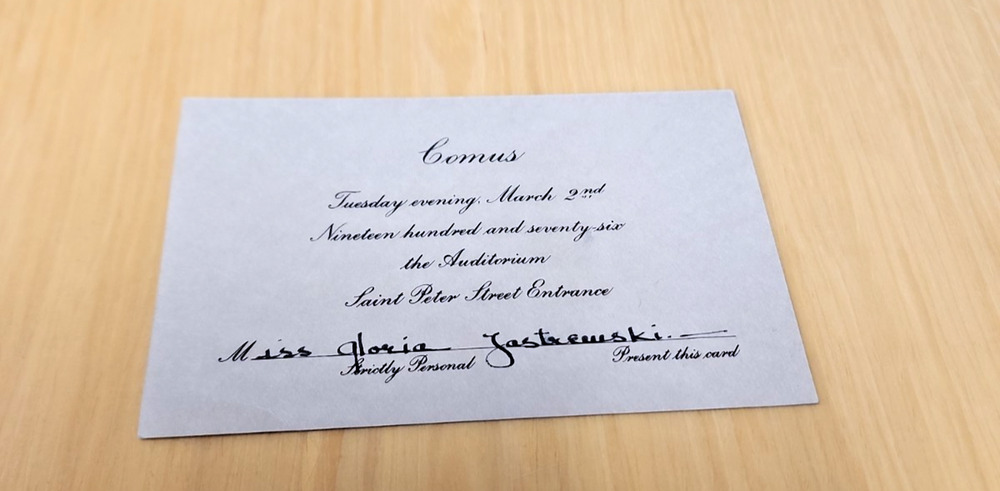 Comus
Tuesday evening, March 2nd
Nineteen hundred and seventy-six
the Auditorium
Saint Peter Street Entrance
Miss Gloria Jastremski.
Strictly Personal Present this card